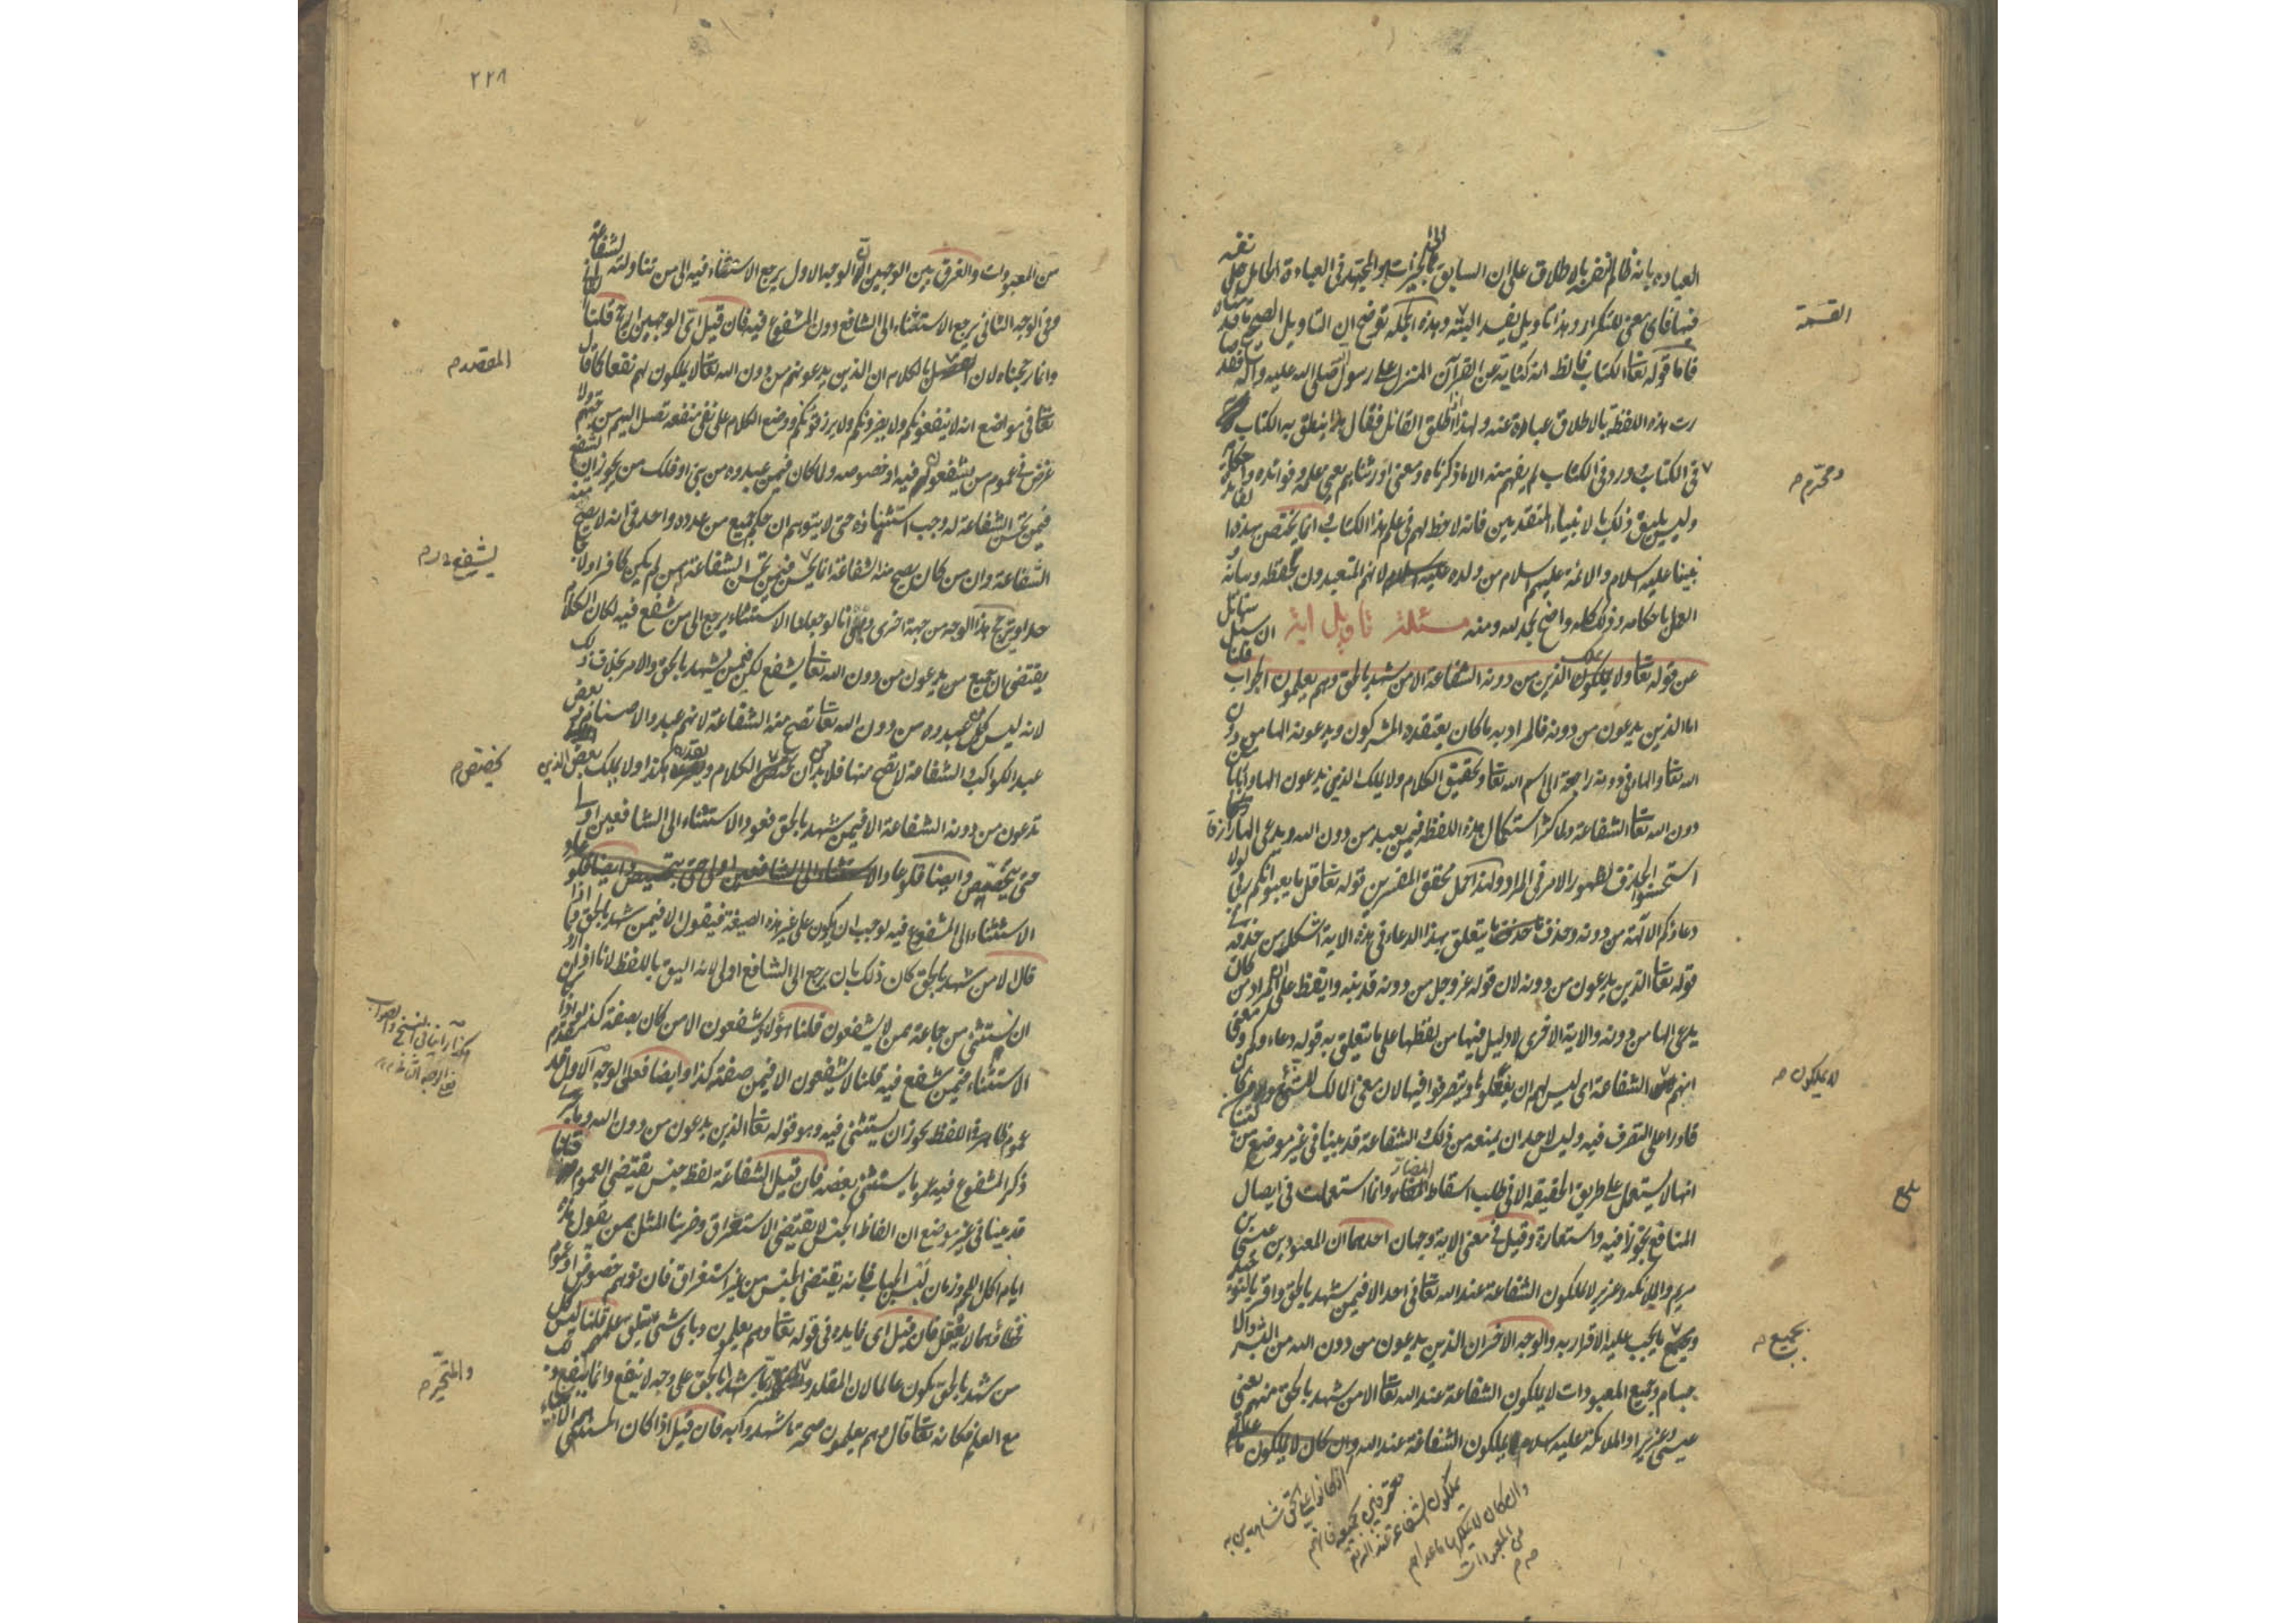 العبادة بانه ظالم لنفسه بالاطلاق على ان السابق بالخيرات هو المجتهد في العبادة الحامل على نفسه
فيها فاى معنى للتكرار وهذا تاويل يفسد البتة وهذه الجملة توضح ان التاويل الصحيح ما قدمناه
فاما قوله تعا الكتاب فالظ انه كناية عن القرآن المنزل على رسول الله صلى الله عليه وآله فقد صا
رت هذه اللفظة بالاطلاق عبارة عنه ولهذا اذا اطلق القائل فقال هذا ينطق به الكتاب
في الكتاب وورد في الكتاب لم يفهم منه الا ما ذكرناه ومعنى اورثناهم يعنى علمه وفوائده واحكامه
وليس يليق ذلك بالانبياء المتقدمين فانه لا حظ لهم في علم هذا الكتاب وانما يختص بهذه الفائدة
نبينا عليه السلام والائمة عليهم السلام من ولده لانهم المتعبدون بحفظه وبيانه
العمل باحكامه وذلك كله واضح بحمد لله ومنه مسئلة تاويل اية ان سئل سائل
عن قوله تعا ولا يملك الذين من دونه الشفاعة الا من شهد بالحق وهم يعلمون الجواب قلنا
اما الذين يدعون من دونه فالمراد به ما كان يعتقده المشركون ويدعونه الها من دون
الله تعا والهاء في دونه راجعة الى اسم الله تعا وتحقيق الكلام ولا يملك الذين يدعون الها واربابا من
دون الله تعا الشفاعة ولما كثر استعمال هذه اللفظة فيمن يعبد من دون الله ويدعى الها رازقا
استحسنوا الحذف لظهور الامر في المراد ولهذا حمل محقق المفسرين قوله تعا قل ما يعبؤا بكم ربي لولا
دعاؤكم الآلهة من دونه وحذف ما يتعلق بهذا الدعاء في هذه الاية اشكل من حذفه في
قوله تعا الذين يدعون من دونه لان قوله عز وجل من دونه قد نبه وايقظ على ان المراد من كان
يدعى الها من دونه والاية الاخرى لا دليل فيها من لفظها على ما يتعلق به قوله دعاءكم ومعنى
انهم الشفاعة اى ليس لهم ان يفعلوها ويتصرفوا فيها لان معنى المالك للشئ من كان
قادرا على التصرف فيه وليس لاحد ان يمنعه من ذلك والشفاعة قد بينا في غير موضع من كتبنا
انها لا يستعمل على طريق الحقيقة الا في طلب اسقاط المضار وانما استعملت في ايصال
المنافع تجوزا فيه واستعارة وقيل في معنى الاية وجهان احدهما ان المعبودين عيسى بن
مريم والملائكة وعزير لا يملكون الشفاعة عند الله تعا في احد الا فيمن شهد بالحق واقر بالتوحيد
وبجميع ما يجب عليه الاقرار به والوجه الاخر ان الذين يدعون من دون الله من البشر والا
جسام وجميع المعبودات لا يملكون الشفاعة عند الله تعا الا من شهد بالحق منهم يعنى
عيسى وعزير او الملائكة عليه سلام يملكون الشفاعة عند الله وان كان لا يملكون
القسمة
ومحترم م
لا يملكون م
بلغ
بجميع م
اذا كانوا على الحق شاهدين به
معترفين بجميعه فانهم
يملكون الشفاعة عند الله تع
وان كان لا يملكها ما عداهم
من المعبودات
م م
٢٢٨
من المعبودات والفرق بين الوجهين ان الوجه الاول يرجع الاستثناء فيه الى من تناوله الشفاعة
وفي الوجه الثاني يرجع الاستثناء الى الشافع دون المشفوع فيه فان قيل اى الوجهين ارجح قلنا الثاني
وانما رجحناه لان بالكلام ان الذين يدعونهم من دون الله تعا لا يملكون لهم نفعا كما قال
تعا في مواضع انه لا ينفعونكم ولا يضرونكم ولا يرزقونكم ووضع الكلام على نفى منفعة تصل اليهم من جهتهم ولا
غرض في عموم من يشفعون فيه او خصوصه ولما كان فيمن عبدوه من نبي او ملك من يجوز ان يشفع
فيمن تحسن الشفاعة له وجب استثناؤه حتى لا يتوهم ان حكم جميع من عدوه واحد في انه لا يصح منه
الشفاعة وان من كان يصح منه الشفاعة انما يحسن فيمن تحسن الشفاعة له ممن لم يكن كافرا ولا جا
حدا ويترجح هذا الوجه من جهة اخرى وهى انا لو جعلنا الاستثناء يرجع الى من شفع فيه لكان الكلام
يقتضى ان جميع من يدعون من دون الله تعا يشفع لكن فيمن يشهد بالحق والامر بخلاف ذلك
لانه ليس كل من عبدوه من دون الله تعا تصح منه الشفاعة لانهم عبدوا الاصنام وبعض
عبد الكواكب والشفاعة لا تصح منها فلا بد من ان الكلام ويقدر هكذا ولا يملك بعض الذين
تدعون من دونه الشفاعة الا فيمن شهد بالحق فعود الاستثناء الى الشافعين اولى
حتى يتخصص وايضا فلو عاد
الاستثناء الى المشفوع فيه لوجب ان يكون على غير هذه الصيغة فيقول الا فيمن شهد بالحق فاذا
قال الا من شهد بالحق كان ذلك بان يرجع الى الشافع اولى لانه اليق باللفظ لانا اذا اردنا
ان نستثنى من جماعة ممن لا يشفعون قلنا هؤلاء لا يشفعون الا من كان بصفة كذا واذا
الاستثناء فيمن شفع فيه قلنا لا يشفعون الا فيمن صفته كذا وايضا فعلى الوجه الاول قد
عموم ظاهره اللفظ يجوز ان يستثنى فيه وهو قوله تعا الذين يدعون من دون الله
ذكر المشفوع فيه عموما يستثنى بعضه فان قيل الشفاعة لفظ جنس يقتضى العموم قلنا
قد بينا في غير موضع ان الفاظ الجنس لا يقتضى الاستغراق وضربنا المثل بمن يقول هذه
ايام اكل اللحم وزمان لبس الجباب فانه يقتضى الجنس من غير استغراق فان توهم خصوص او عموم
فخطأ بها لا يعقل فان قيل اى فائدة في قوله تعا وهم يعلمون وباى شئ يتعلق علمهم قلنا ليس كل
من شهد بالحق يكون عالما لان المقلد ربما شهد بالحق على وجه لا ينفع وانما ينفع ذلك
مع العلم فكانه تعا قال وهم يعلمون صحة ما شهدوا به فان قيل اذا كان المستثنى
المقصد م
يشفع م
يختص م
والمتحير م